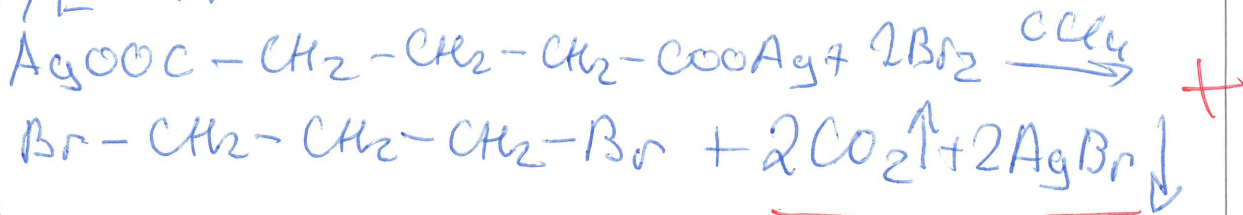 AgOOC – CH₂ – CH₂ – CH₂ – COOAg + 2Br₂ CCl₄ →
Br – CH₂ – CH₂ – CH₂ – Br + 2CO₂↑ + 2AgBr↓
+